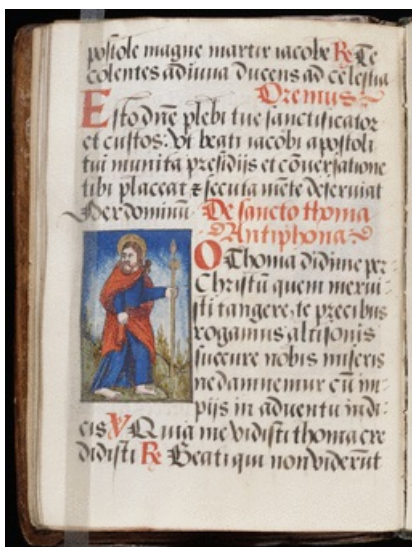 postole magne martir iacobe R̃ Te
colentes adiuua ducens ad celestia
Oremus
Esto dñe plebi tue sanctificator
et custos: vt beati iacobi apostoli
tui munita presidijs et cõuersatione
tibi placeat ⁊ secura mẽte deseruiat
Per dominũ De sancto thoma
Antiphona
O Thoma didime per
Christũ quem merui-
sti tangere, te precibus
rogamus altisonis
succure nobis miseris
ne damnemur cũ im-
pijs in aduentu iudi-
cis V Quia me vidisti thoma cre
didisti R̃ Beati qui non viderũt